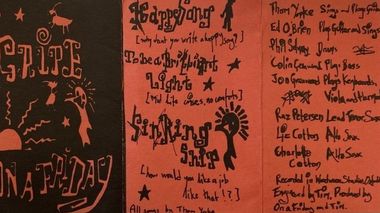 GRIPE
ON A FRIDAY
Happy Song
[why don't you write a happy song!]
To be a Brilliant
Light
[Mid Life crises, no comforts]
Sinking
Ship
[how would you like a job
like that!?]
All songs by Thom Yorke
Thom Yorke Sings and Plays Guitar
Ed O'Brien Plays Guitar and Sings
Phil Selway Drums
Colin Greenwood Plays Bass
Jon Greenwood Plays Keyboards,
Viola and Harmonica
Raz Petersen Lead Tenor Sax
Liz Cotton Alto Sax
Charlotte Cotton Alto Sax
Recorded in Woodworm Studios
Engineered by Tim. Produced by
On a Friday and Tim.